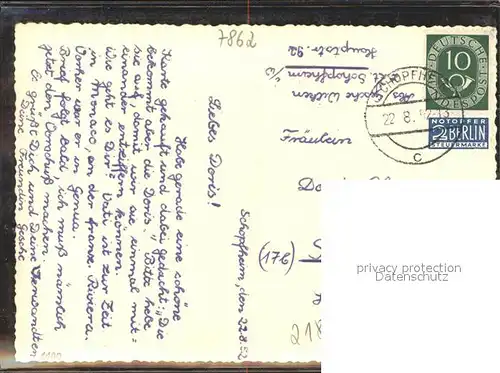 7862
Liebes Doris!
Habe gerade eine schöne
Karte gekauft und dabei gedacht: „Die
bekommt aber die Doris." Bitte hebe
sie auf, damit wir sie einmal mit=
einander entziffern können.
Wie geht es Dir? Vati ist zur Zeit
in Monaco, an der franz. Riviera.
Vorher war er in Genua.
Brief folgt bald, ich muß nämlich
jetzt den Vorschuß machen.
Es grüßt Dich und Deine Verwandten
Deine Freundin Gesche
Schopfheim, den 22.8.52
Schopfheim
Hauptstr. 92
Fräulein
(17b)
218
DEUTSCHE BUNDESPOST
10
NOTOPFER
2 BERLIN
STEUERMARKE
SCHOPFHEIM
22.8.52
c
privacy protection
Datenschutz